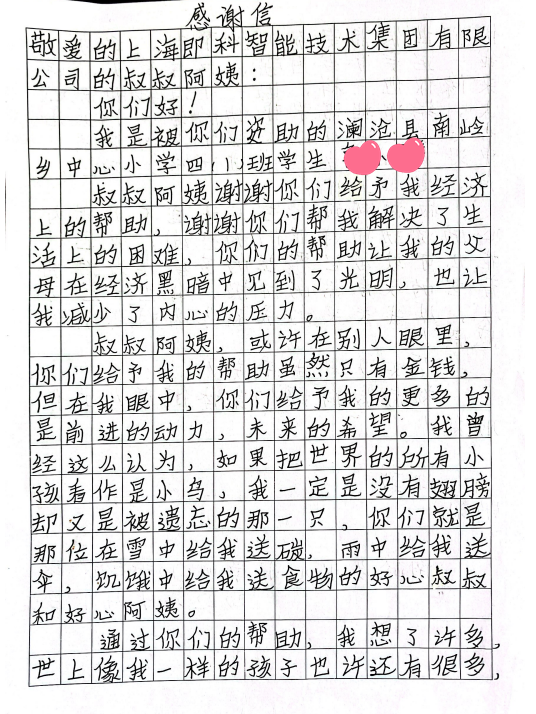 感谢信
敬爱的上海即科智能技术集团有限
公司的叔叔阿姨：
你们好！
我是被你们资助的澜沧县南岭
乡中心小学四（1）班学生
叔叔阿姨谢谢你们给予我经济
上的帮助，谢谢你们帮我解决了生
活上的困难，你们的帮助让我的父
母在经济黑暗中见到了光明，也让
我减少了内心的压力。
叔叔阿姨，或许在别人眼里，
你们给予我的帮助虽然只有金钱，
但在我眼中，你们给予我的更多的
是前进的动力，未来的希望。我曾
经这么认为，如果把世界的所有小
孩看作是小鸟，我一定是没有翅膀
却又是被遗忘的那一只，你们就是
那位在雪中给我送碳，雨中给我送
伞，饥饿中给我送食物的好心叔叔
和好心阿姨。
通过你们的帮助，我想了许多，
世上像我一样的孩子也许还有很多，